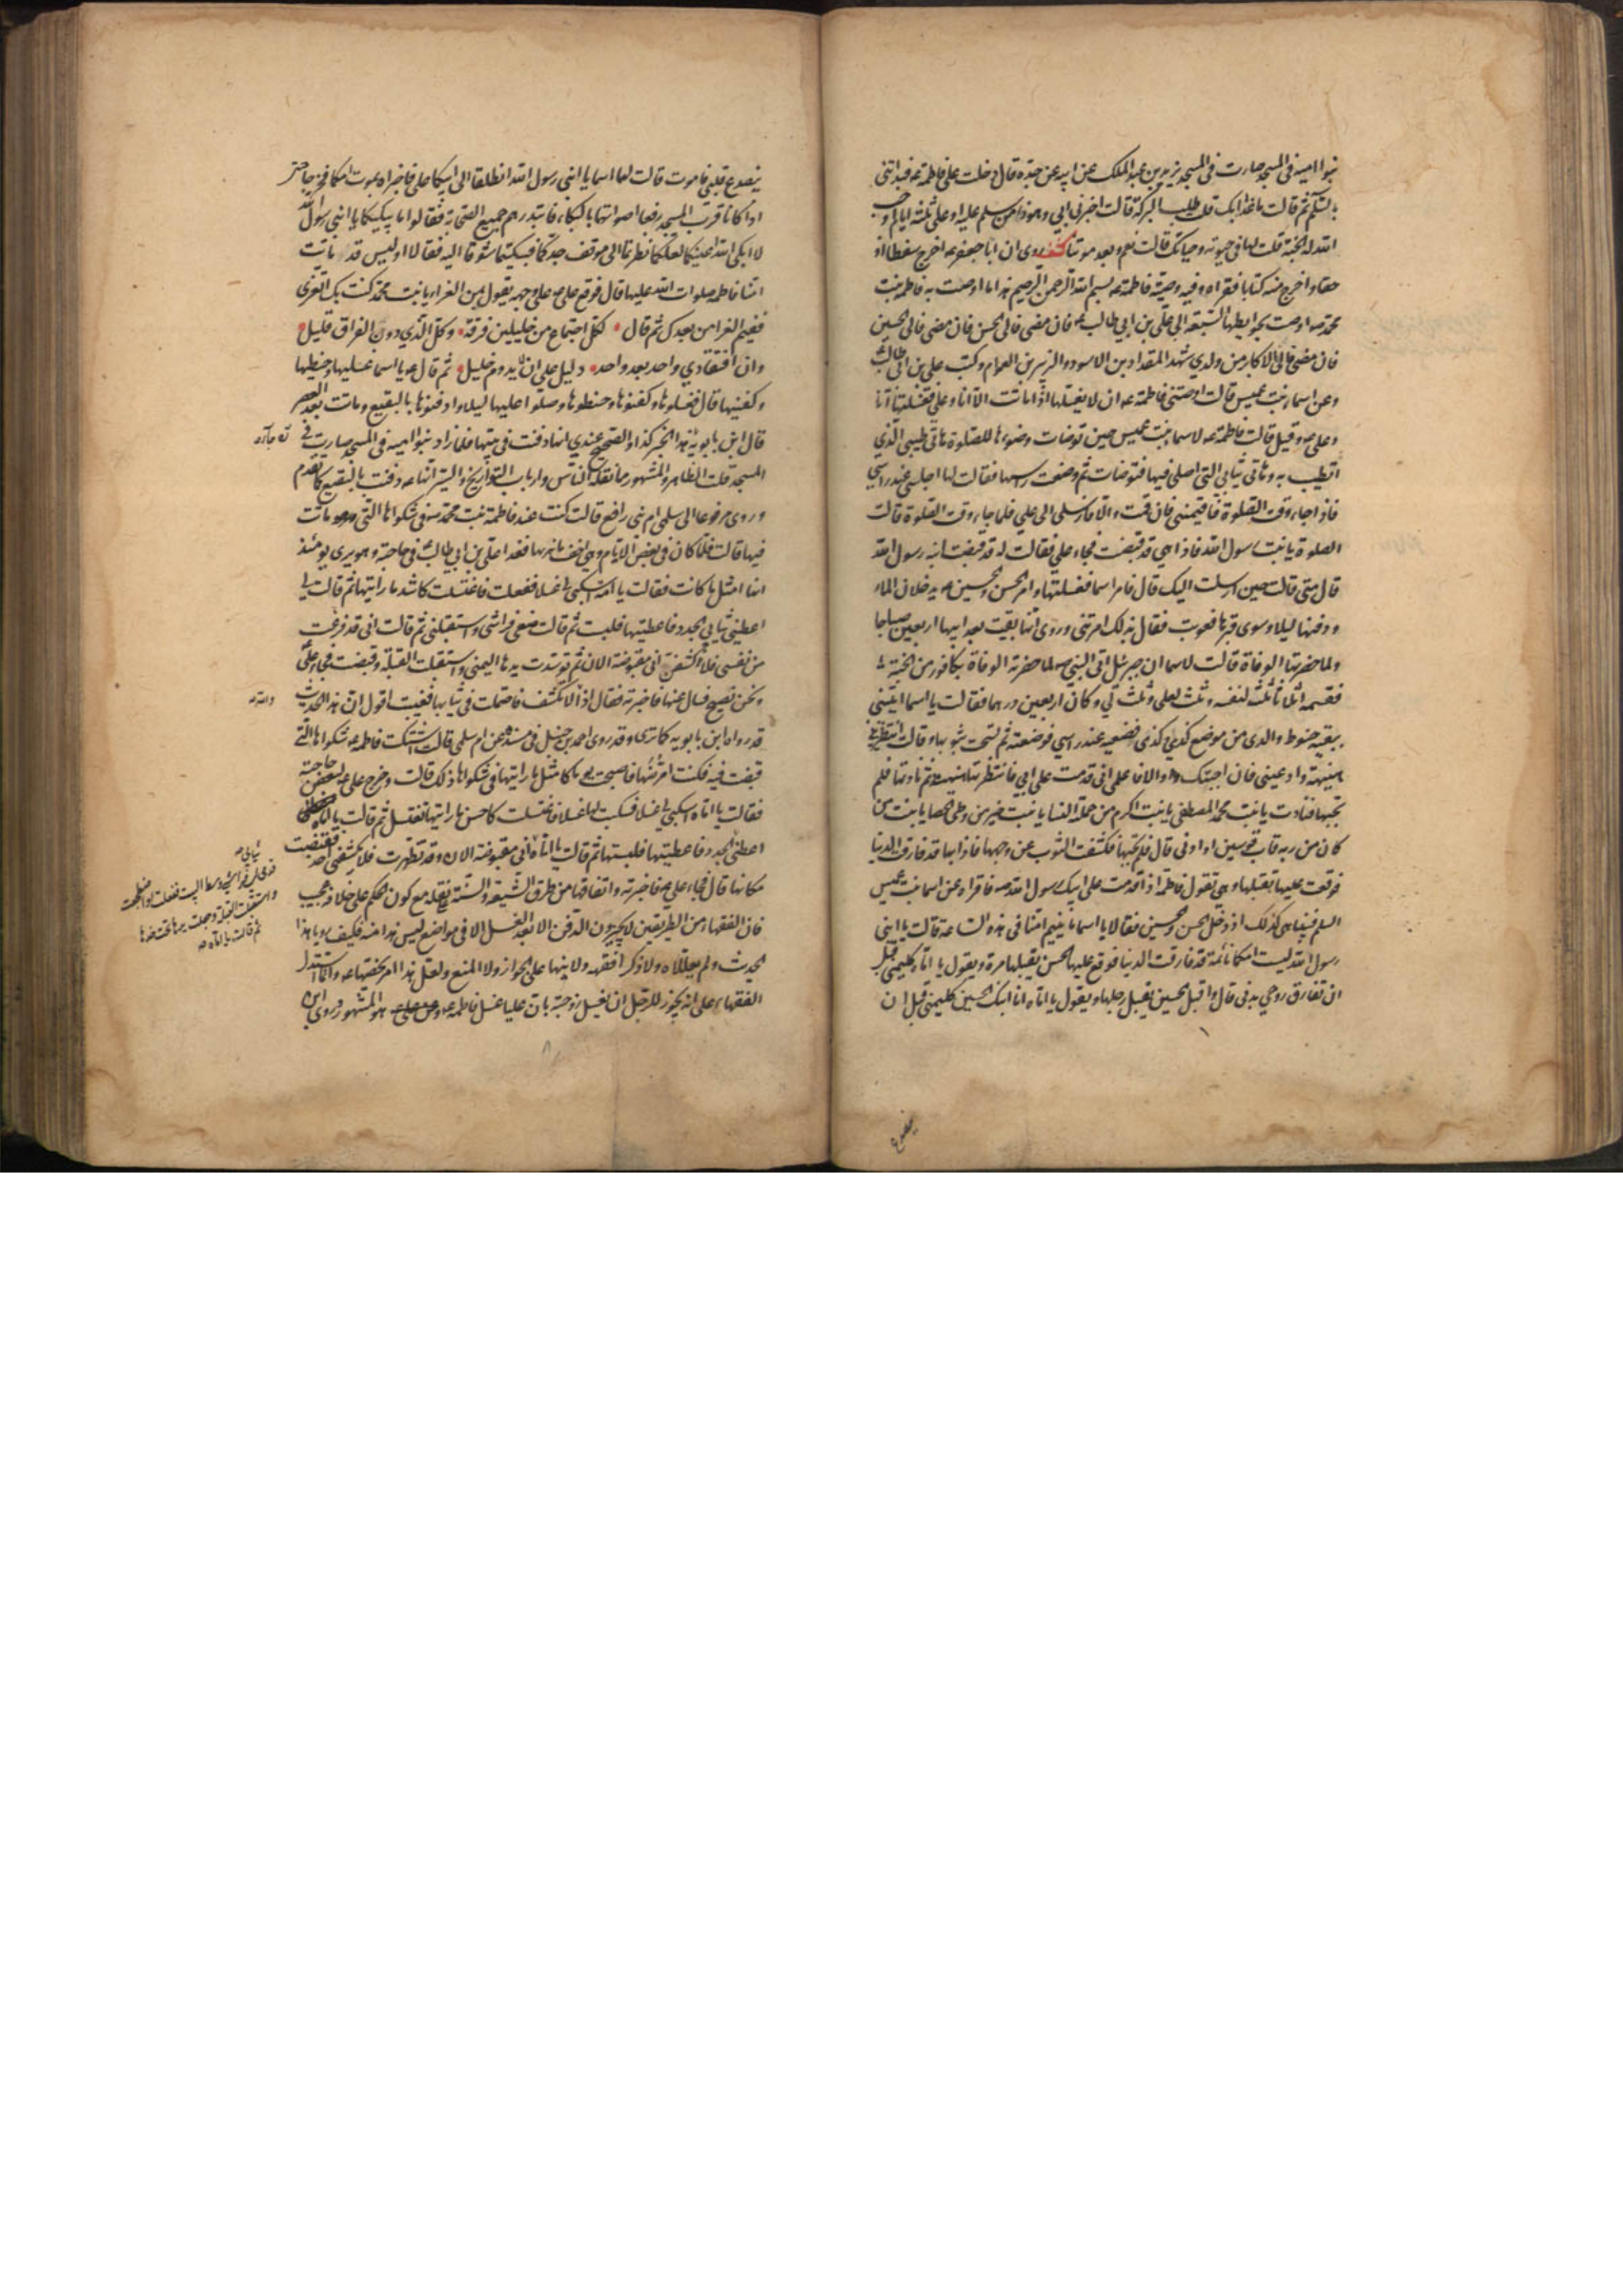 بنوا امية في المسجد صارت في المسجد يزيد بن عبد الملك عن ابيه عن جده قال دخلت على فاطمة عه فبدأتني
بالسلام ثم قالت ما غدا بك قلت طلب البركة قالت اخبرني ابي وهو ذا هو من سلم عليه او علي ثلثة ايام اوجب
الله له الجنة قلت لها في حيوته وحياتك قالت نعم وبعد موتنا كشف روى ان ابا جعفر عه اخرج سفطا او
حقا واخرج منه كتابا فقراه وفيه وصية فاطمة عه بسم الله الرحمن الرحيم هذا ما اوصت به فاطمة بنت
محمد صه اوصت بحوايطها السبعة الى علي بن ابي طالب عه فان مضى فالى الحسن فان مضى فالى الحسين
فان مضى فالى الاكابر من ولدي شهد المقداد بن الاسود والزبير بن العوام وكتب علي بن ابي طالب
وعن اسماء بنت عميس قالت اوصتني فاطمة عه ان لا يغسلها اذا ماتت الا انا وعلي فغسلتها انا
وعلي عه وقيل قالت فاطمة عه لاسماء بنت عميس حين توضات وضوءها للصلوة هاتي طيبي الذي
اتطيب به وهاتي ثيابي التي اصلي فيها فتوضات ثم وضعت رسها فقالت لها اجلسي عند راسي
فاذا جاء وقت الصلوة فاقيميني فان قمت والا فارسلي الى علي فلما جاء وقت الصلوة قالت
الصلوة يا بنت رسول الله فاذا هي قد قبضت فجاء علي فقالت له قد قبضت ابنة رسول الله
قال متى قالت حين ارسلت اليك قال فامر اسما فغسلتها وامر الحسن والحسين عه يدخلان الماء
ودفنها ليلا وسوى قبرها فعوتب فقال بذلك امرتني وروى انها بقيت بعد ابيها اربعين صباحا
ولما حضرتها الوفاة قالت لاسما ان جبرئيل اتى النبي صه لما حضرته الوفاة بكافور من الجنة
فقسمه اثلاثا ثلث لنفسه وثلث لعلي وثلث لي وكان اربعين درهما فقالت يا اسما ايتيني
ببقية حنوط والدي من موضع كذى وكذى فضعيه عند راسي فوضعته ثم تسجت بثوبها وقالت انتظريني
هنيهة وادعيني فان اجبتك والا فاعلمي اني قدمت على ابي فانتظرتها هنيهة ثم نادتها فلم
تجبها فنادت يا بنت محمد المصطفى يا بنت اكرم من حملته النسا يا بنت خير من وطئ الحصا يا بنت من
كان من ربه قاب قوسين او ادنى قال فلم تجبها فكشفت الثوب عن وجهها فاذا بها قد فارقت الدنيا
فوقعت عليها تقبلها وهي تقول فاطمة اذا قدمت على ابيك رسول الله صه فاقراه عن اسما بنت عميس
السلم فبينا هي كذلك اذ دخل الحسن والحسين فقالا يا اسما ما ينيم امنا في هذه الساعة قالت يا ابني
رسول الله ليست امكما نائمة قد فارقت الدنيا فوقع عليها الحسن يقبلها مرة ويقول يا اماه كلميني قبل
ان تفارق روحي بدني قال واقبل الحسين يقبل رجلها ويقول يا اماه انا ابنك الحسين كلميني قبل ان
ينصدع قلبي فاموت قالت لهما اسما يا ابني رسول الله انطلقا الى ابيكما علي فاخبراه بموت امكما فخرجا حتى
اذا كانا قرب المسجد رفعا اصواتهما بالبكاء فابتدرهم جميع الصحابة فقالوا ما يبكيكما يا ابني رسول الله
لا ابكى الله اعينكما لعلكما نظرتما الى موقف جدكما فبكيتما شوقا اليه فقالا اوليس قد ماتت
امنا فاطمة صلوات الله عليها قال فوقع علي عه على وجهه يقول بمن العزاء يا بنت محمد كنت بك اتعزى
ففيم العزا من بعدك ثم قال لكل اجتماع من خليلين فرقة وكل الذي دون الفراق قليل
وان افتقادي واحد بعد واحد دليل على ان لا يدوم خليل ثم قال عه يا اسما غسليها وحنطيها
وكفنيها قال فغسلوها وكفنوها وحنطوها وصلوا عليها ليلا ودفنوها بالبقيع وماتت بعد العصر
قال ابن بابويه هذا الخبر كذا والصحيح عندي انها دفنت في بيتها فلما زاد بنوا امية في المسجد صارت في
المسجد قلت الظاهر والمشهور مما نقله الناس وارباب التواريخ والسير انها عه دفنت بالبقيع كما تقدم
وروى مرفوعا الى سلمى ام بني رافع قالت كنت عند فاطمة بنت محمد صه في شكواها التي ماتت
فيها قالت فلما كان في بعض الايام وهي اخف ما نريها فغدا علي بن ابي طالب في حاجته وهو يرى يومئذ
انها امثل ما كانت فقالت يا امه اسكبي لي غسلا ففعلت فاغتسلت كاشد ما رايتها ثم قالت لي
اعطيني ثيابي الجدد فاعطيتها فلبست ثم قالت ضعي فراشي واستقبليني ثم قالت اني قد فرغت
من نفسي فلا اكشفن اني مقبوضة الان ثم توسدت يدها اليمنى واستقبلت القبلة وقبضت فجاء علي
ونحن نصيح فسال عنها فاخبرته فقال اذا لا تكشف فاحتملت في ثيابها فغيبت اقول ان هذا الحديث
قد رواه ابن بابويه كما ترى وقد روى احمد بن حنبل في مسنده عن ام سلمى قالت اشتكت فاطمة عه شكواها التي
قبضت فيه فكنت امرضها فاصبحت يوما كامثل ما رايتها في شكواها ذلك قالت وخرج علي عه لبعض حاجته
فقالت يا اماه اسكبي لي غسلا فسكبت لها غسلا فاغتسلت كاحسن ما رايتها تغتسل ثم قالت يا اماه
اعطني الجدد فاعطيتها فلبستها ثم قالت يا اماه اني مقبوضة الان وقد تطهرت فلا يكشفني احد فقبضت
مكانها قال فجاء علي عه فاخبرته واتفاقهما من طرق الشيعة والسنة على نقله مع كون الحكم على خلافه عجيب
فان الفقهاء من الطريقين لا يجيزون الدفن الا بعد الغسل الا في مواضع ليس هذا منه فكيف رويا هذا
الحديث ولم يعللاه ولا ذكرا فقهه ولا نبها على الجواز ولا المنع ولعل هذا امر يخصها عه وانما استدل
الفقهاء على انه يجوز للرجل ان يغسل زوجته بان عليا غسل فاطمة عه وهو المشهور وروى ابن
ثيابي
قدمي لي فراشي وسط البيت ففعلت واضطجعت
واستقبلت القبلة وجعلت يدها تحت خدها
ثم قالت يا اماه
ينصدع